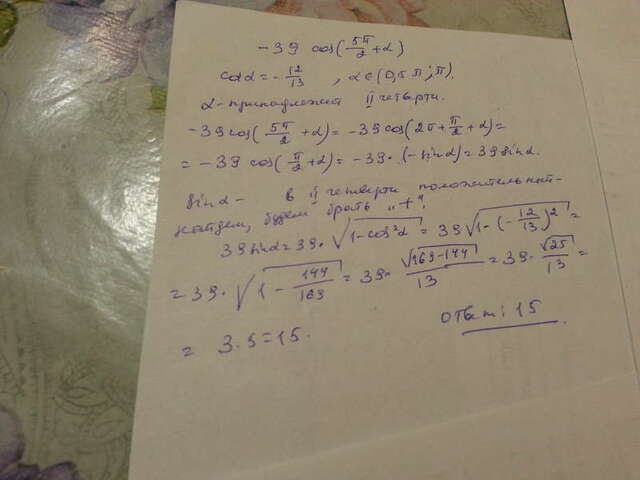 -39 cos(5π/2+α)
cosα=-12/13, α∈(0,5π;π).
α-принадлежит II четверти.
-39cos(5π/2+α)=-39cos(2π+π/2+α)=
=-39 cos(π/2+α)=-39·(-sinα)=39sinα.
sinα- в II четверти положительный-
найдем, будем брать „+“.
39sinα=39·√(1-cos²α)=39√(1-(-12/13)²)=
=39·√(1-144/169)=39·√(169-144)/13=39·√25/13=
=3·5=15.
Ответ: 15